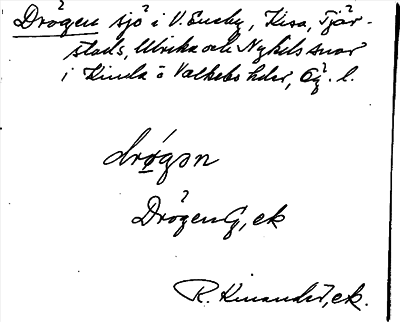 Drögen sjö i V. Eneby, Kisa, Tjär-
stads, Ulrika och Nykils snar
i Kinda o Valkebo hdr, Ög. l.
drøgən
Drögen G, ek
R. Kinander, ek.